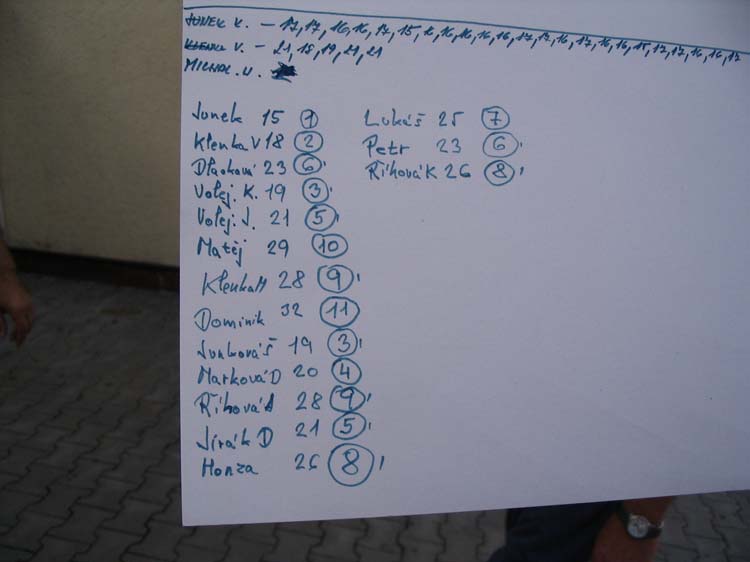 JUNEK K. – 17, 17, 16, 16, 17, 15, 16, 16, 16, 16, 16, 17, 17, 16, 17, 16, 16, 15, 17, 17, 16, 16, 17
KLENKA V. – 21, 18, 19, 21, 21
MICHAL. U.
Junek 15 1
Klenka V 18 2
Dlasková 23 6
Volej. K. 19 3
Volej. J. 21 5
Matěj 29 10
Klenka M 28 9
Dominik 32 11
Junková Š 19 3
Marková D 20 4
Říhová A 28 9
Jirák D 21 5
Honza 26 8
Lukáš 25 7
Petr 23 6
Říhová K 26 8